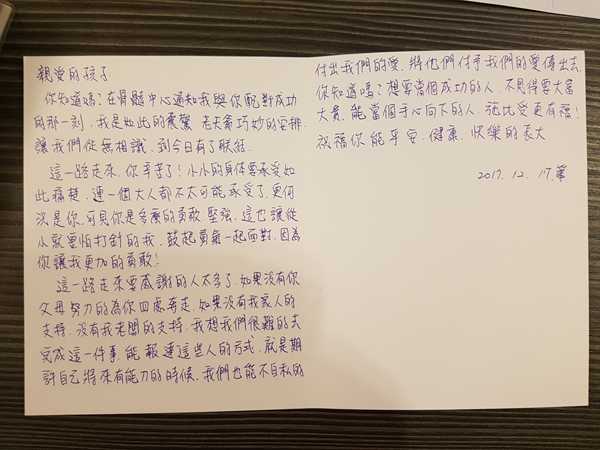 親愛的孩子
你知道嗎?在骨髓中心通知我與你配對成功
的那一刻,我是如此的震驚,老天爺巧妙的安排
讓我們從無相識,到今日有了联結.
這一路走來,你辛苦了!小小的身体要承受如
此痛楚,連一個大人都不太可能承受了,更何
況是你,可見你是多麼的勇敢、堅強,這也讓從
小就害怕打針的我,鼓起勇氣一起面對,因為
你讓我更加的勇敢!
這一路走來要感謝的人太多了,如果沒有你
父母努力的為你四處奔走,如果沒有我家人的
支持,沒有我老闆的支持,我想我們很難的去
完成這一件事,能報達這些人的方式,就是期
許自己將來有能力的時候,我們也能不自私的
付出我們的愛,將他們付予我們的愛傳出去,
你知道嗎?想要當個成功的人,不見得要大富
大貴,能當個手心向下的人,施比受更有福!
祝福你能平安、健康、快樂的長大
2017.12.17.筆